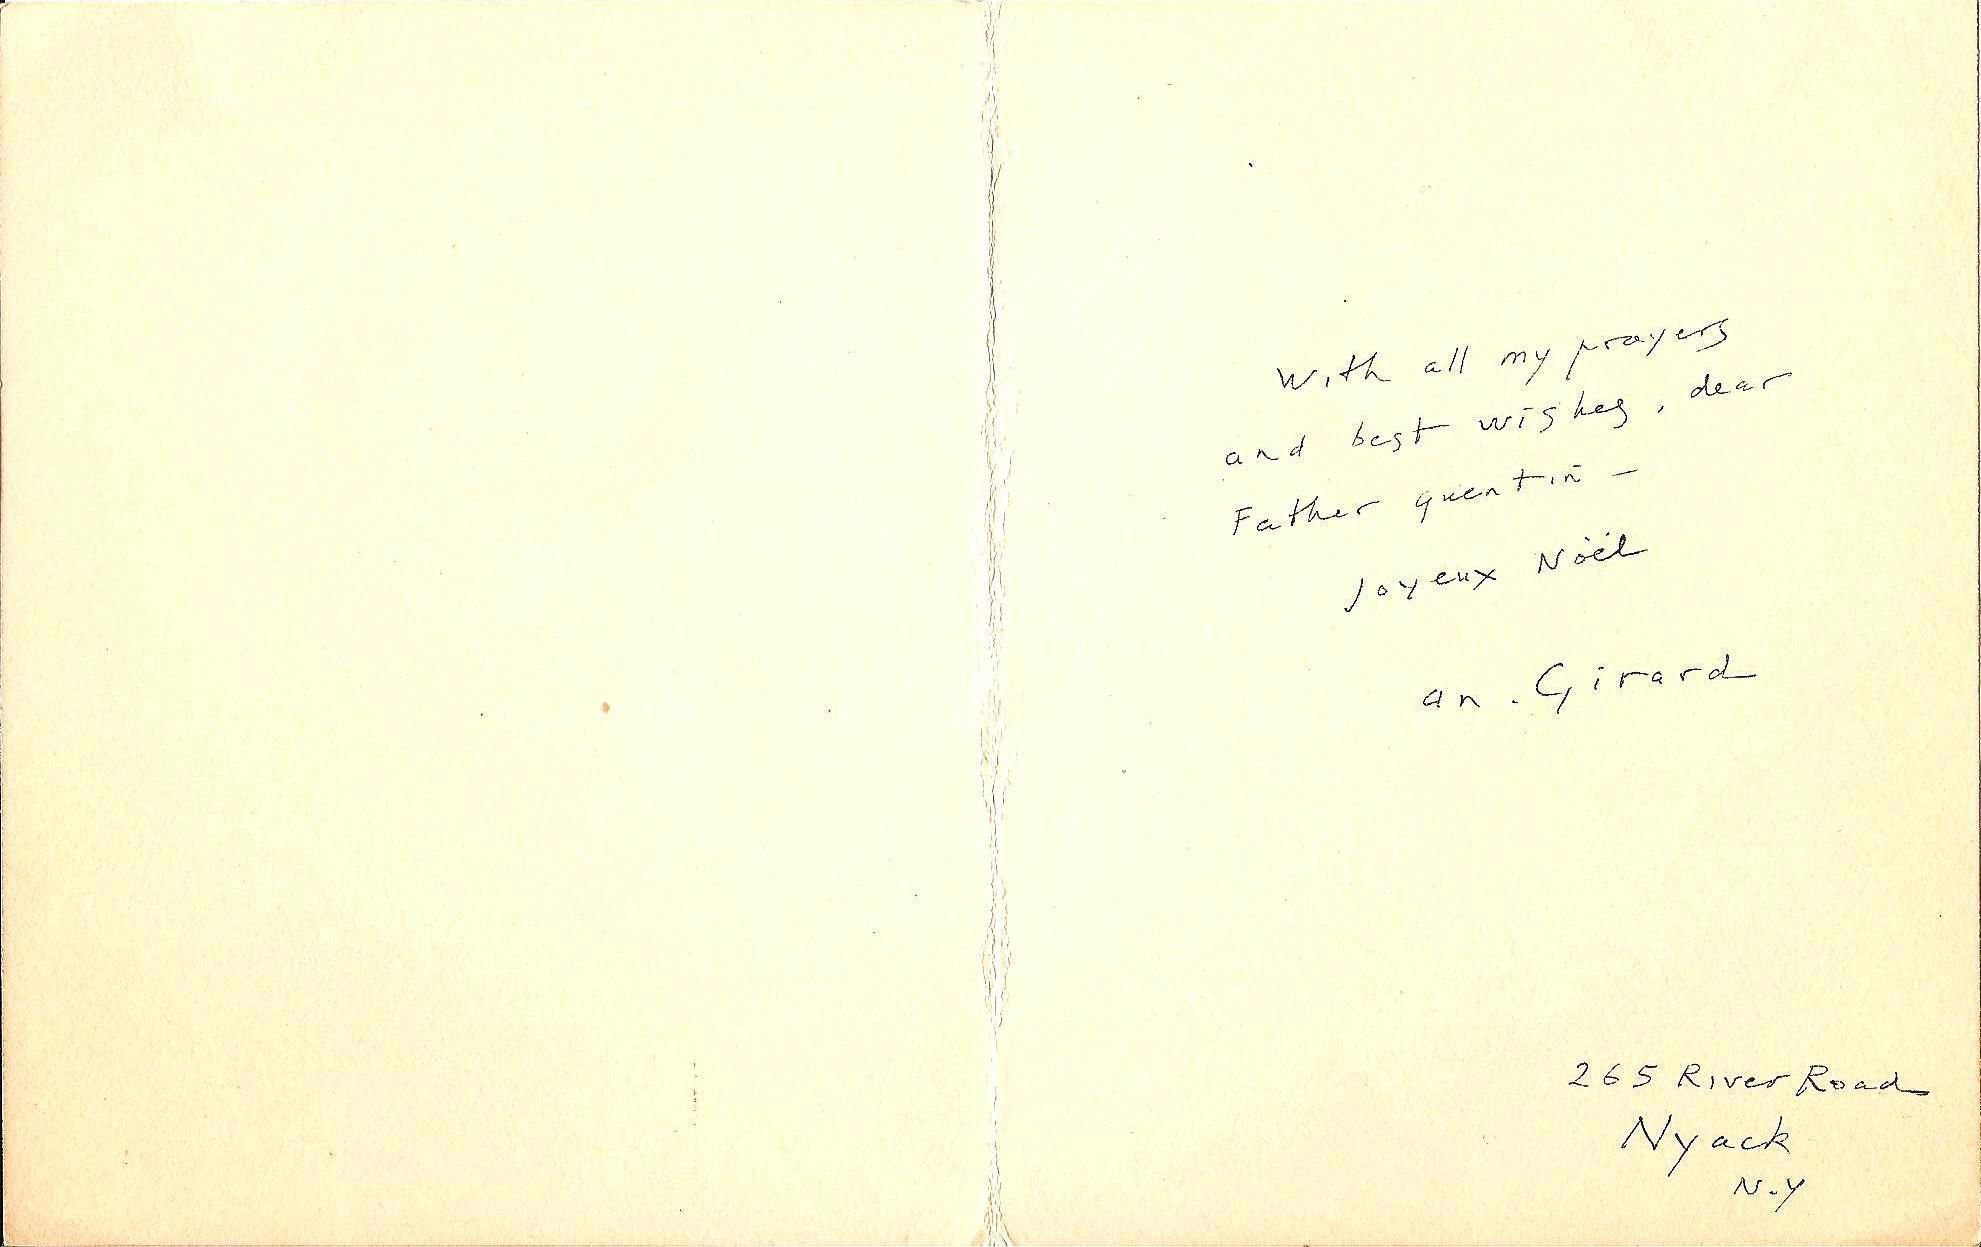 With all my prayers
and best wishes, dear
Father quentin –
Joyeux Nöël
an. Girard
265 River Road
Nyack
N.Y